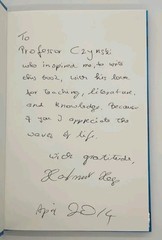 To
Professor Czynski
who inspired me, to write
this book, with his love
for teaching, literature,
and knowledge. Because
of you I appreciate the
waves of life.
with gratitude,
April 2014